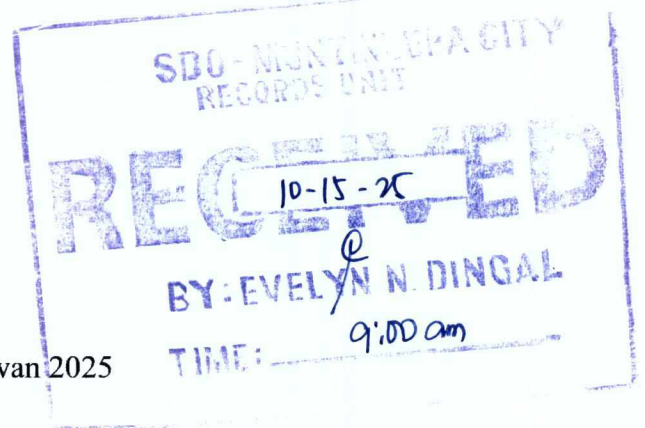 SDO - MUNTINLUPA CITY
RECORDS UNIT
RECEIVED
10-15-25
BY: EVELYN N. DINGAL
TIME: 9:00 am
van 2025